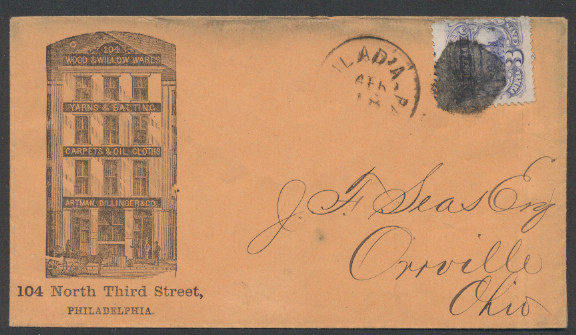 104
WOOD & WILLOW WARES
YARNS & BATTING
CARPETS & OIL CLOTHS
ARTMAN, DILLINGER & CO.
104 North Third Street,
PHILADELPHIA.
ILAD'A. P
APR
J. F. Seas Esq
Orrville
Ohio